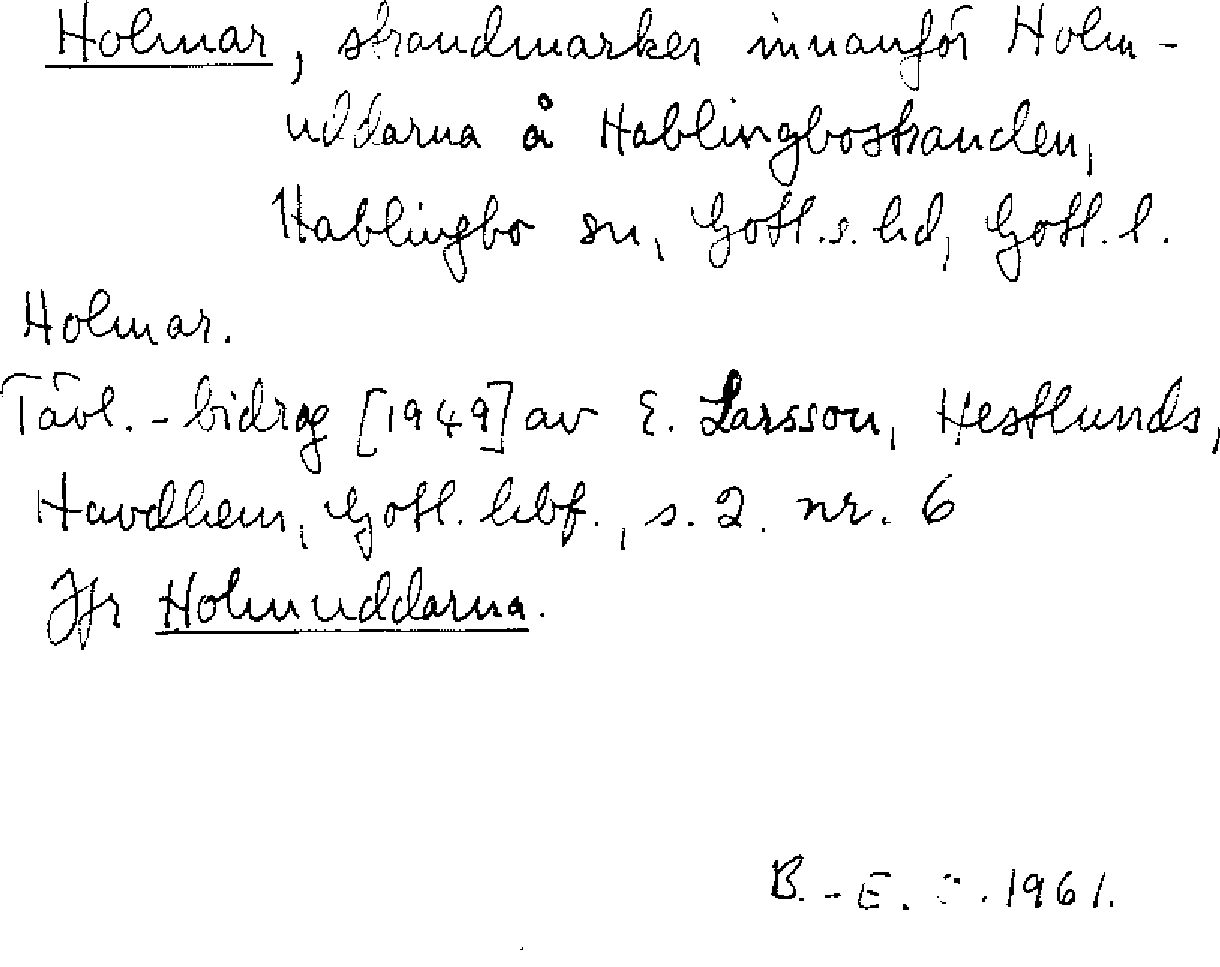 Holmar, strandmarker innanför Holm-
uddarna å Hablingbostranden,
Hablingbo sn, Gotl.s. hd, Gotl. l.
Holmar.
Tävl.-bidrag [1949] av E. Larsson, Hestlunds,
Havdhem, Gotl. hbf., s. 2. nr. 6
Jfr Holmuddarna.
B.-E. 1961.